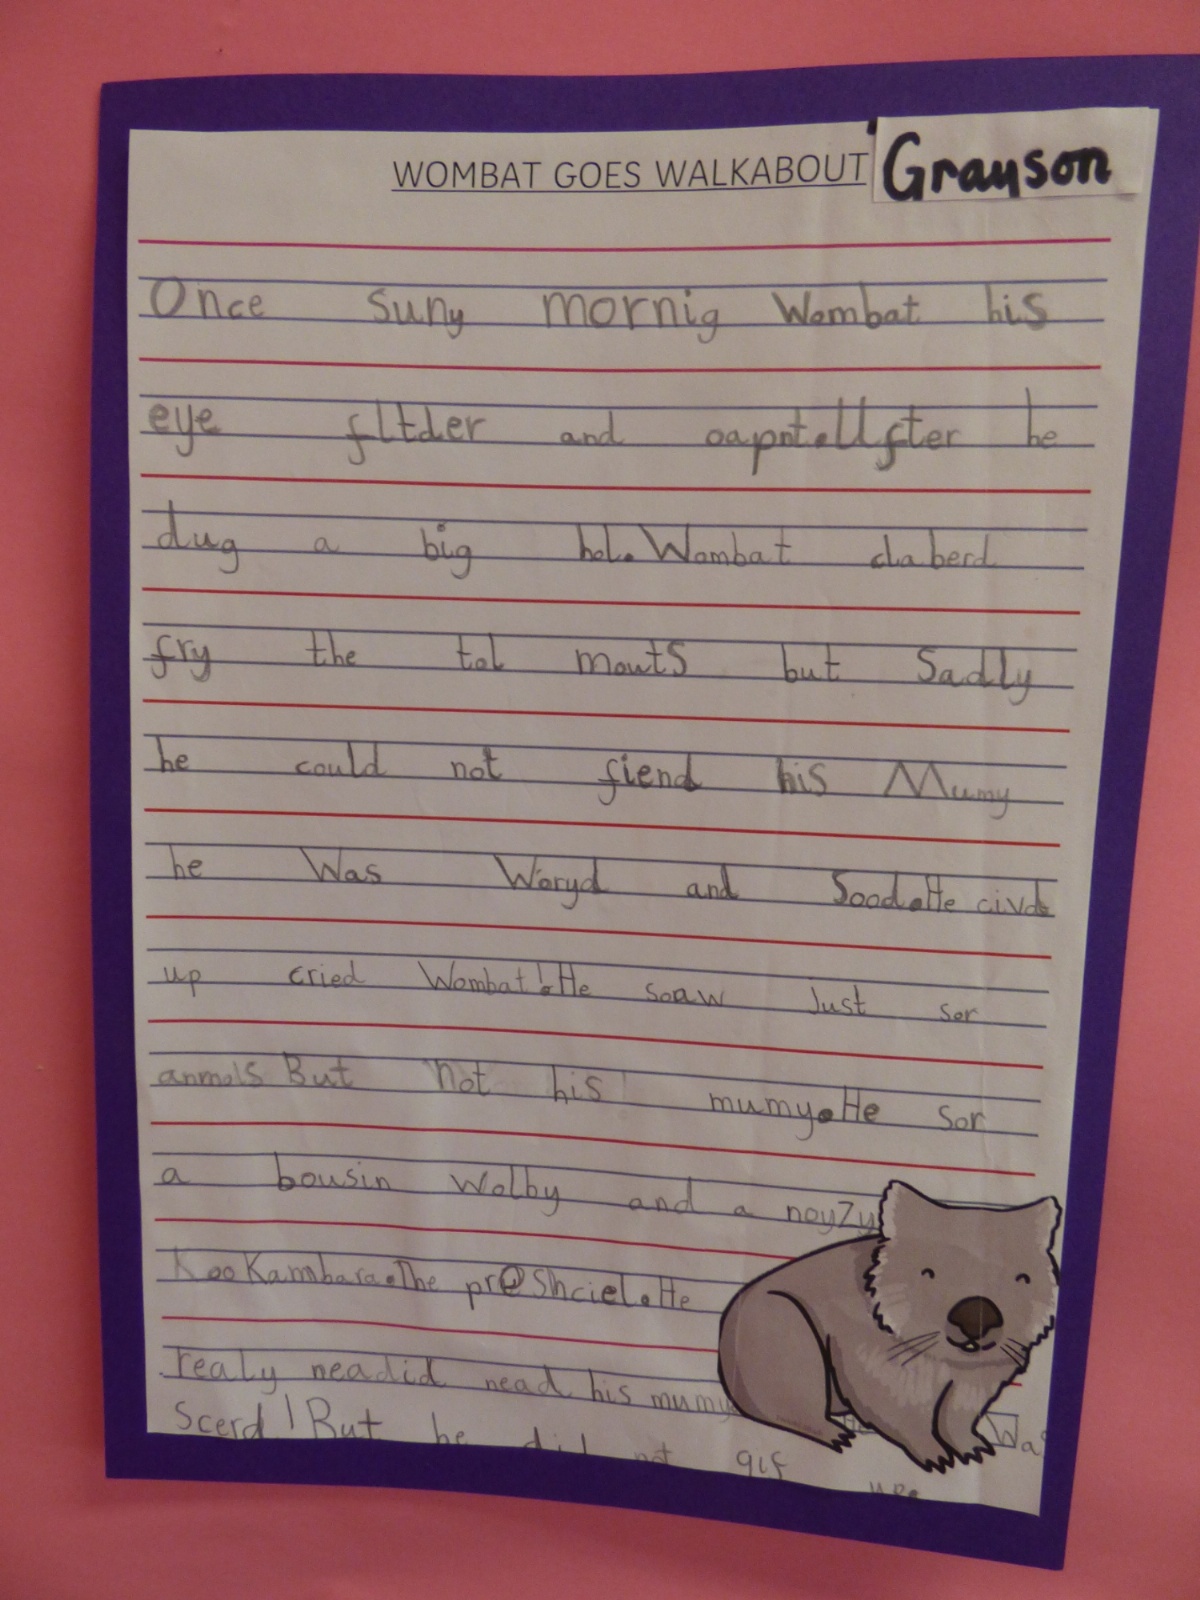 WOMBAT GOES WALKABOUT Grayson
Once suny mornig Wombat his
eye fltder and oapnt.Ufter he
dug a big hol.Wombat claberd
fry the tol mowts but Sadly
he could not fiend his Mumy
he Was Woryd and Sood.He civde
up cried Wombat!.He soaw Just sor
anmols But not his mumy.He sor
a bousin Wolby and a noyZy
KooKambara.The preShciel.He
realy neadid nead his mumy Was
Scerd!But he did not gif